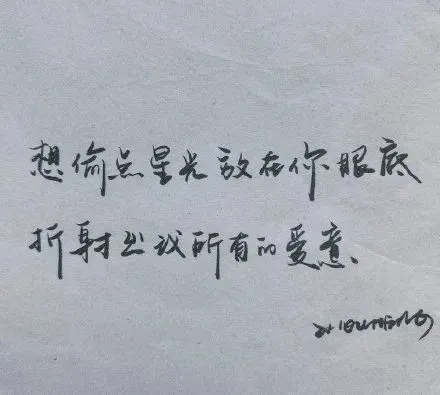 想偷点星光放在你眼底
折射出我所有的爱意、